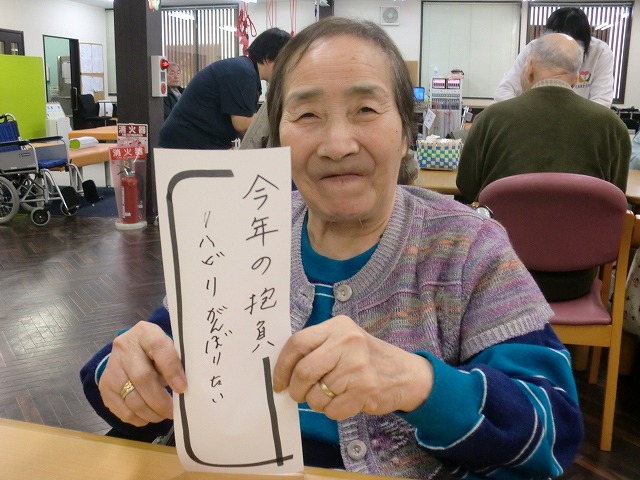 今年の抱負
リハビリがんばりたい
消火器
消火器